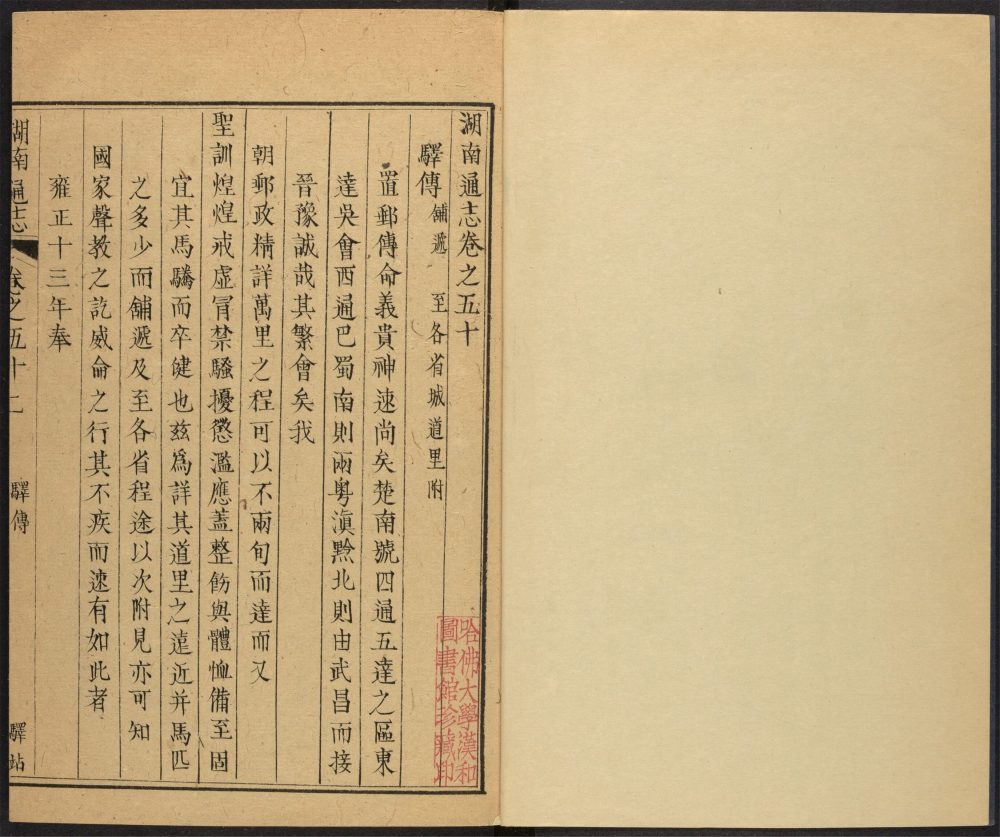 湖南通志卷之五十
驛傳 舖遞 至各省城道里附
置郵傳命義貴神速尚矣楚南號四通五達之區東
達吳會西通巴蜀南則兩粤滇黔北則由武昌而接
晉豫誠哉其繁會矣我
朝郵政精詳萬里之程可以不兩旬而達而又
聖訓煌煌戒虛冐禁騷擾懲濫應蓋整飭與體恤備至固
宜其馬騰而卒健也兹爲詳其道里之遠近并馬匹
之多少而舖遞及至各省程途以次附見亦可知
國家聲教之訖威侖之行其不疾而速有如此者
雍正十三年奉
湖南通志 卷之五十 驛傳 驛站
哈佛大學漢和
圖書館珍藏印